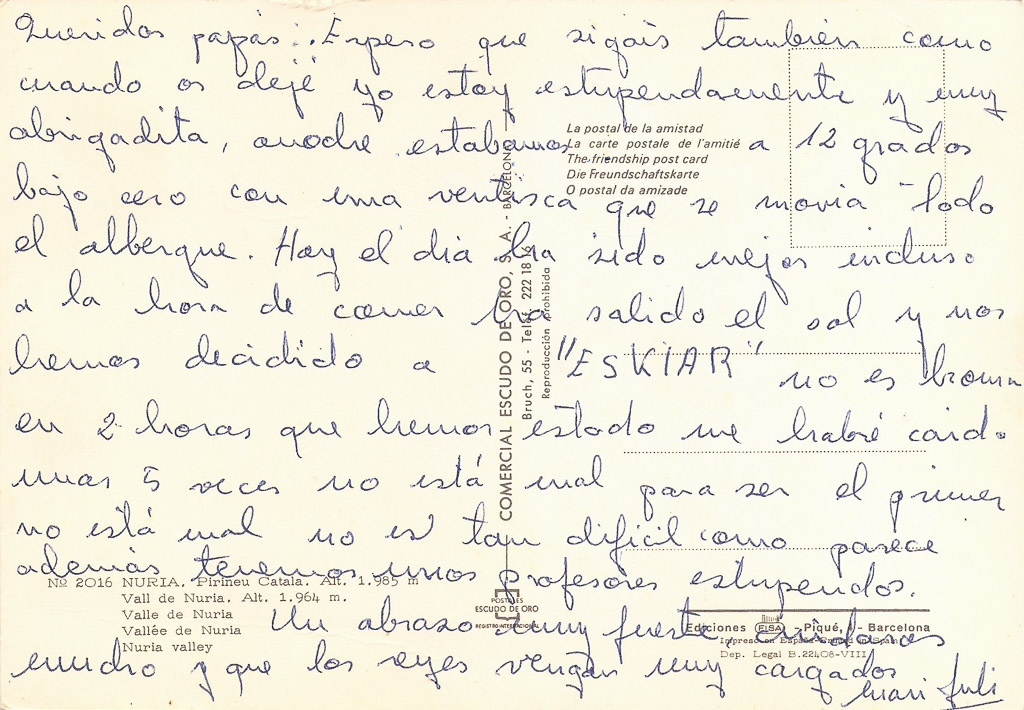 Queridos papás: Espero que sigáis también como
cuando os dejé yo estoy estupendamente y muy
abrigadita, anoche estabamos a 12 grados
bajo cero con una ventisca que se movía todo
el albergue. Hoy el día ha sido mejor incluso
a la hora de comer ha salido el sol y nos
hemos decidido a "ESKIAR" no es broma
en 2 horas que hemos estado me habré caido
unas 5 veces no está mal para ser el primer
no está mal no es tan dificil como parece
además tenemos unos profesores estupendos.
Un abrazo muy fuerte. Cuidaros
mucho y que los reyes vengan muy cargados
Mari Juli
La postal de la amistad
La carte postale de l'amitié
The friendship post card
Die Freundschaftskarte
O postal da amizade
COMERCIAL ESCUDO DE ORO, S. A. - BARCELONA
Bruch, 55 - Teléf. 222 18 16
Reproducción prohibida
Nº 2016 NURIA. Pirineu Català. Alt. 1.985 m
Vall de Nuria. Alt. 1.964 m.
Valle de Nuria
Vallée de Nuria
Nuria valley
POSTALES
ESCUDO DE ORO
REGISTRO INTERNACIONAL
Ediciones FISA - Piqué, - Barcelona
Impreso en España-Printed in Spain
Dep. Legal B.22408-VIII